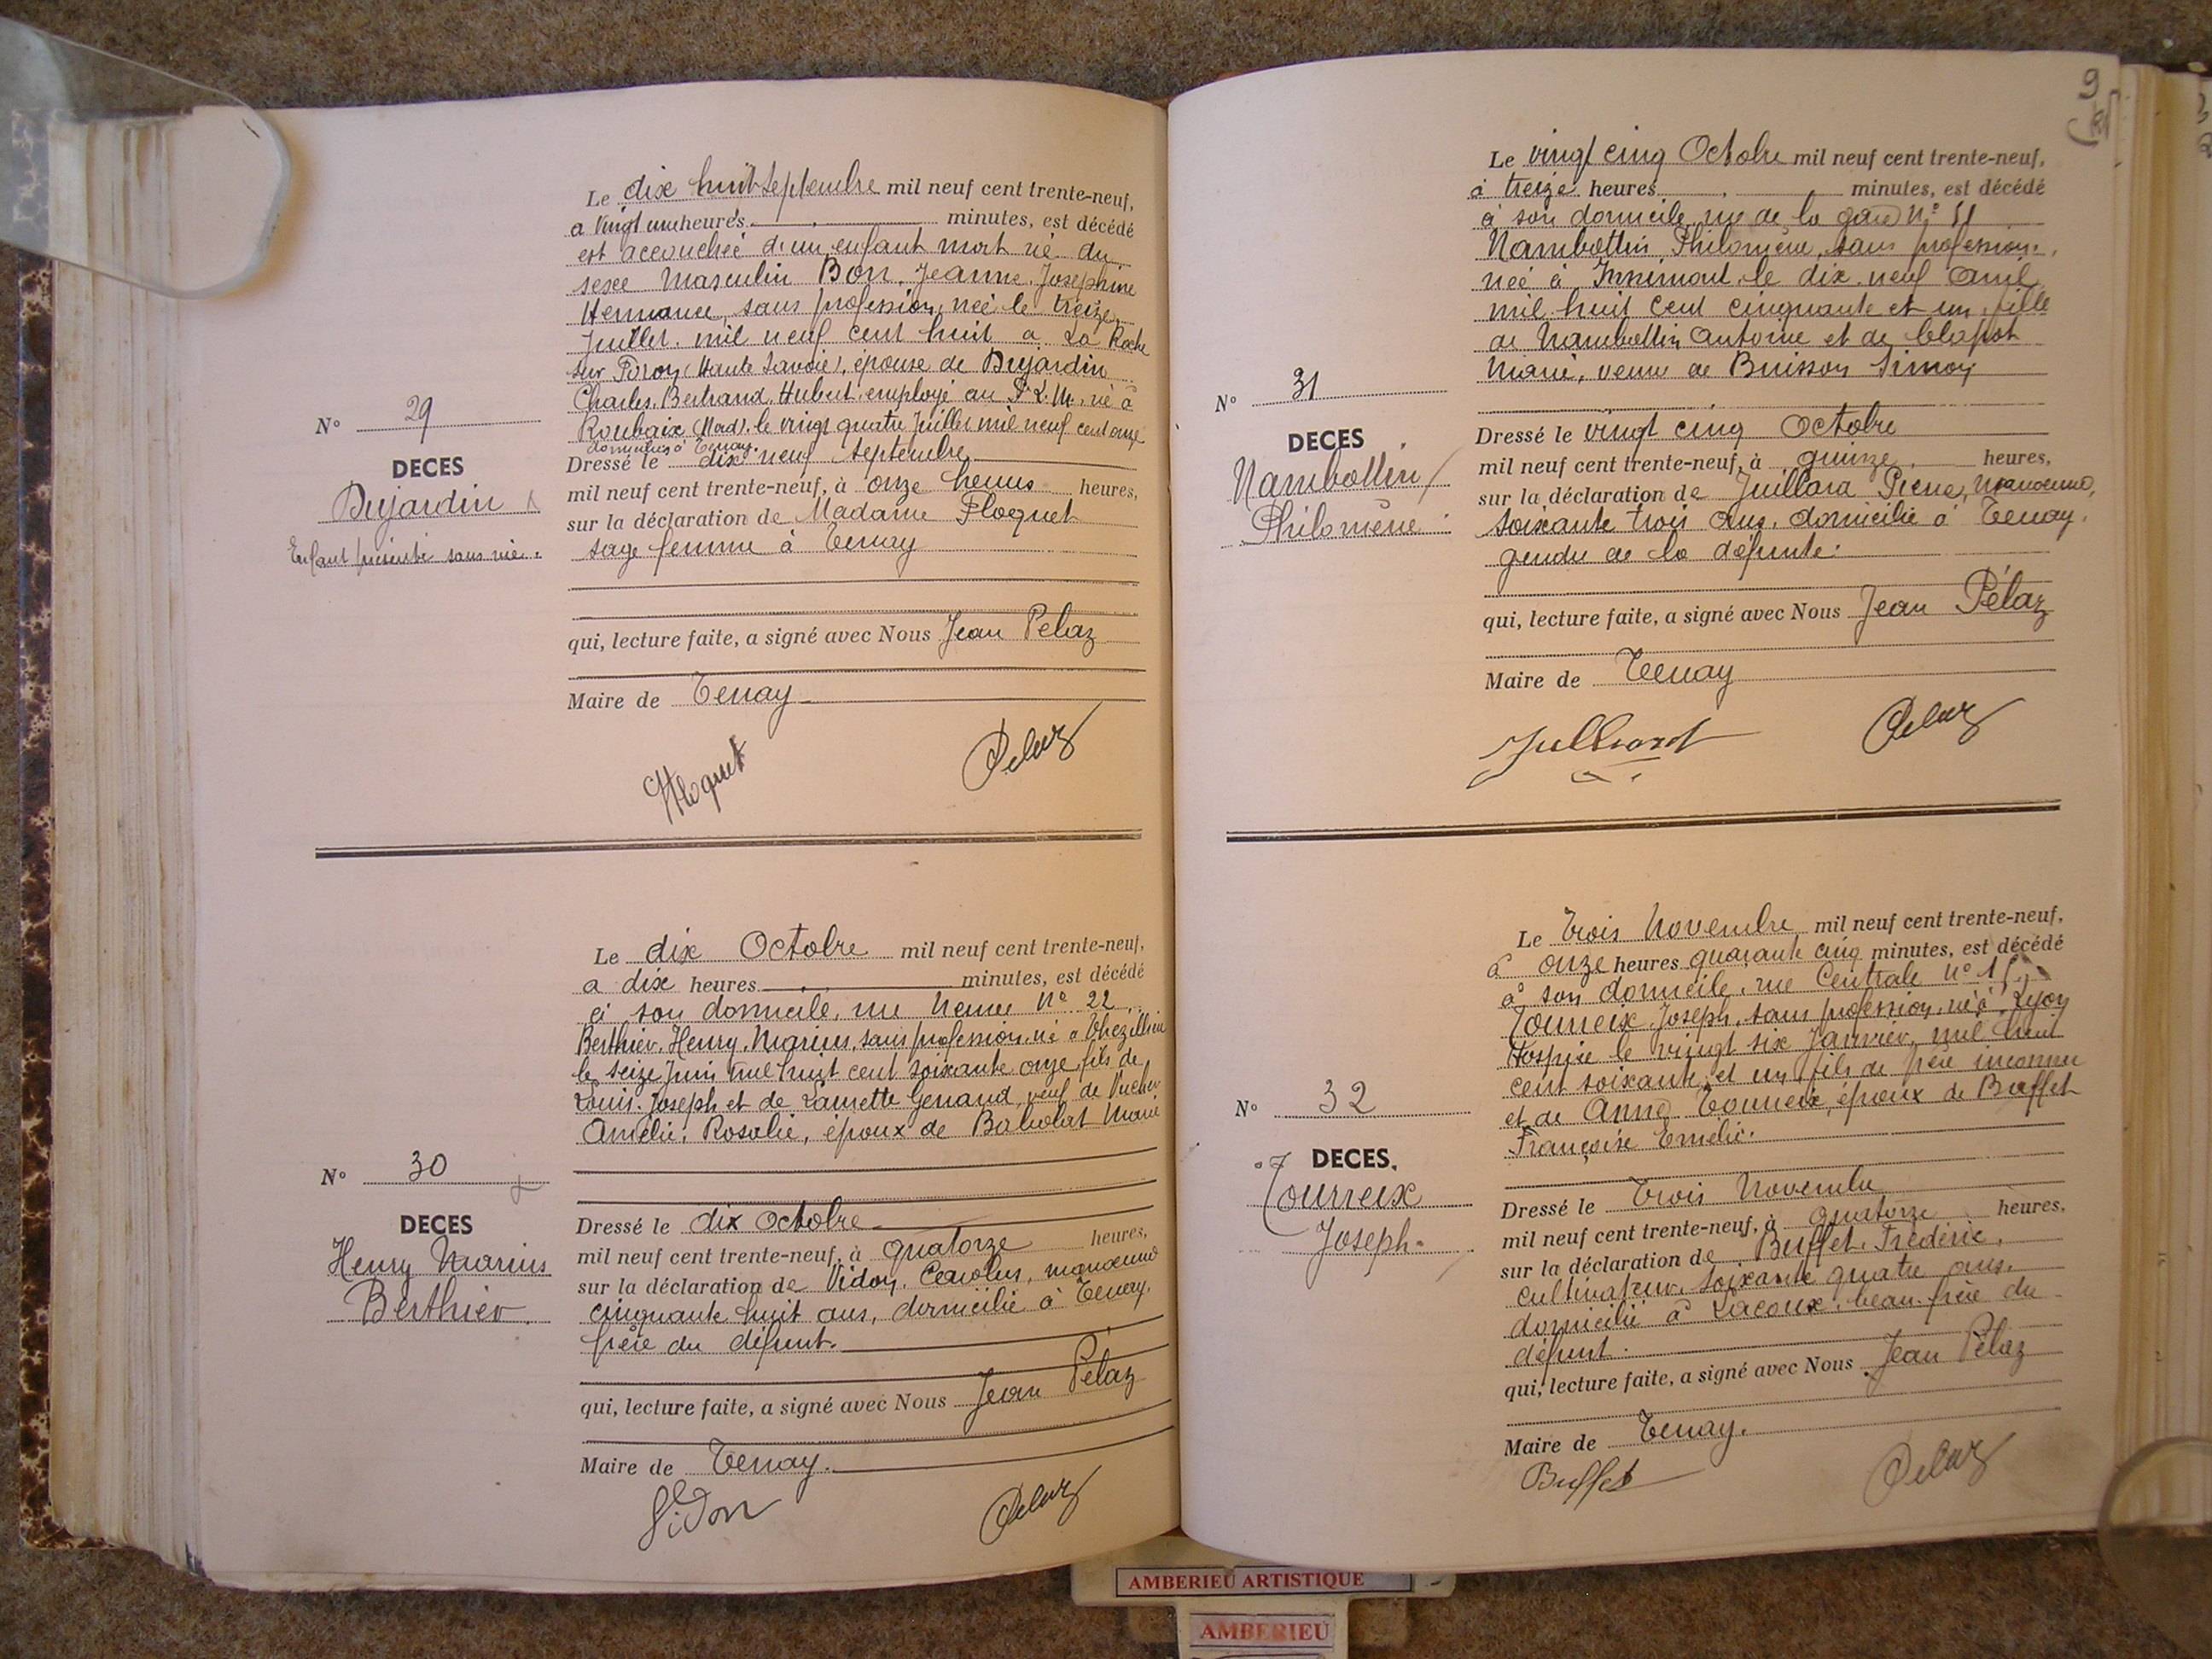 Le dix huit Septembre mil neuf cent trente-neuf,
a vingt une heures minutes, est décédé
est accouchée d'un enfant mort né du
sexe Masculin Bon, Jeanne, Joséphine
Hermance, sans profession, née le treize
Juillet mil neuf cent huit a La Roche
sur Foron (Haute Savoie), épouse de Dujardin
Charles, Bertrand, Hubert, employé au P.L.M., né à
Roubaix (Nord), le vingt quatre Juillet mil neuf cent onze
domiciliés à Tenay.
N° 29
DECES
Dujardin
Enfant présenté sans vie.
Dressé le dix neuf Septembre
mil neuf cent trente-neuf, à onze heures heures,
sur la déclaration de Madame Floquet
sage femme à Tenay
qui, lecture faite, a signé avec Nous Jean Pelaz
Maire de Tenay
Floquet Pelaz
Le dix Octobre mil neuf cent trente-neuf,
a dix heures minutes, est décédé
à son domicile, rue Neuve N° 22
Berthier, Henry, Marius, sans profession, né a
le seize Juin mil huit cent soixante onze, fils de
Louis, Joseph et de Laurette Genand, veuf de
Amélie, Rosalie, époux de Marie
N° 30
DECES
Henry Marius
Berthier.
Dressé le dix Octobre
mil neuf cent trente-neuf, à quatorze heures,
sur la déclaration de Vidon, manoeuvre
cinquante huit ans, domicilié à Tenay,
frère du défunt.
qui, lecture faite, a signé avec Nous Jean Pélaz
Maire de Tenay.
Vidon Pelaz
9
Le vingt cinq Octobre mil neuf cent trente-neuf,
à treize heures minutes, est décédé
à son domicile, rue de la gare N° 51
Nambottin Philomène, sans profession,
née à Innimont, le dix neuf Avril
mil huit cent cinquante et un, fille
de Nambottin Antoine et de
Marie, veuve de Buisson Simon
N° 31
DECES
Nambottin
Philomène
Dressé le vingt cinq Octobre
mil neuf cent trente-neuf, à quinze heures,
sur la déclaration de Juillard Pierre, manoeuvre,
soixante trois ans, domicilié à Tenay,
gendre de la défunte.
qui, lecture faite, a signé avec Nous Jean Pélaz
Maire de Tenay
Juillard Pelaz
Le trois Novembre mil neuf cent trente-neuf,
à onze heures quarante cinq minutes, est décédé
à son domicile, rue Centrale N° 15,
Tourreix, Joseph, sans profession, né à Lyon
Hospice le vingt six Janvier, mil huit
cent soixante et un, fils de père inconnu
et de Anne Tourreix, époux de Buffet
Françoise Emélie.
N° 32
DECES.
Tourreix
Joseph
Dressé le trois Novembre
mil neuf cent trente-neuf, à quatorze heures,
sur la déclaration de Buffet, Frédéric,
cultivateur, soixante quatre ans,
domicilié à Lacoux, beau-frère du
défunt.
qui, lecture faite, a signé avec Nous Jean Pélaz
Maire de Tenay.
Buffet Pelaz
AMBERIEU ARTISTIQUE
AMBERIEU